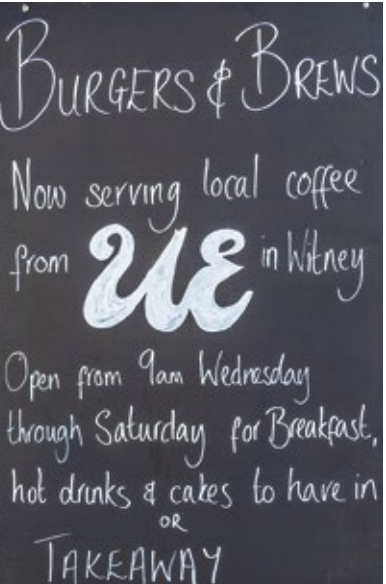 BURGERS & BREWS
Now serving local coffee
from UE in Witney
Open from 9am Wednesday
through Saturday for Breakfast,
hot drinks & cakes to have in
OR
TAKEAWAY